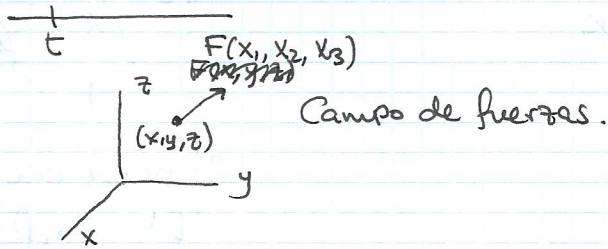 t
F(x₁, x₂, x₃)
z
(x,y,z)
Campo de fuerzas.
y
x